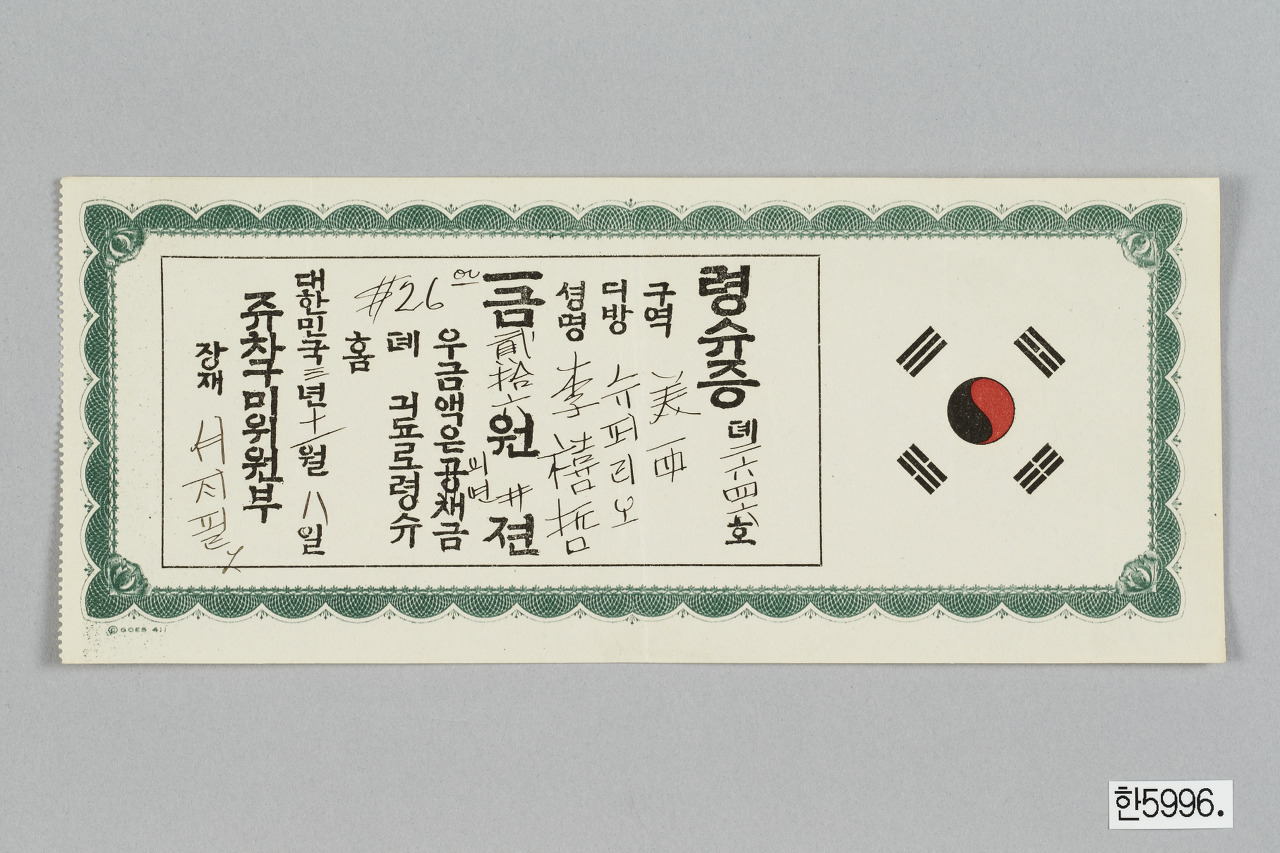 령슈증 뎨二六四六호
구역 美西
디방 뉴퍼리오
셩명 李禧哲
금貳拾六원 #젼
우금액은공채금
의년
뎨 긔됴로령슈
홈
#26 00
대한민국三년十一월八일
쥬차구미위원부
장재 서지필
한5996.
© GOES 411